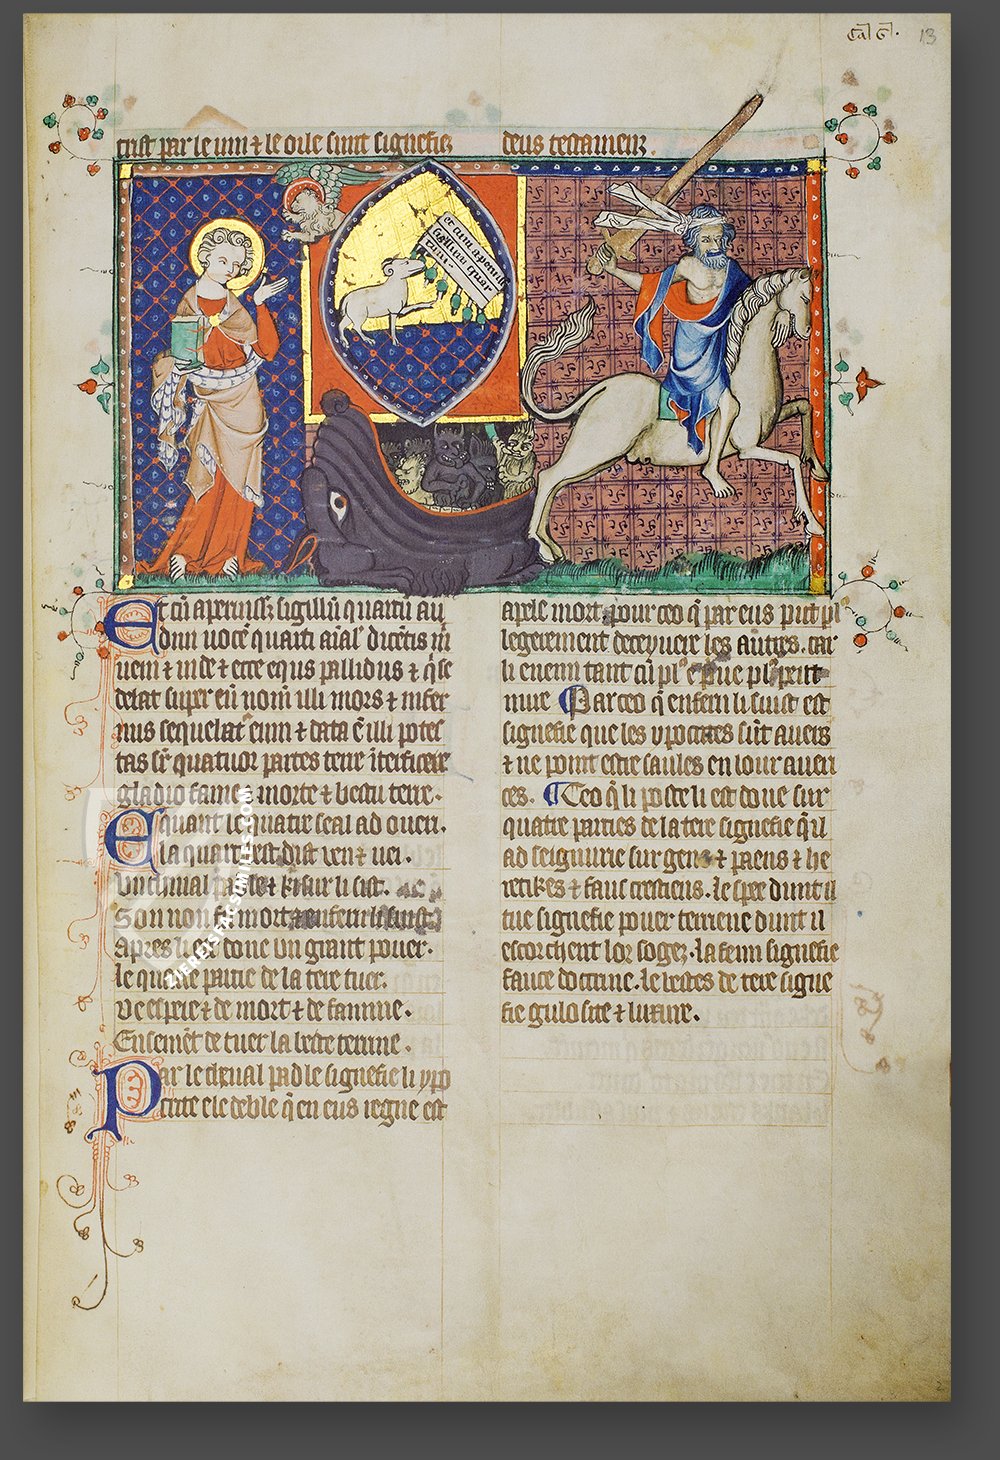 Cal G. 13
crist par le uin ⁊ le oile sunt signefiez deus testamenz.
et cum aperuiss&
sigillum quar
tum.
Et cū aperuiss; sigillū quartū au
diui uocē quarti aīal' dicētis m
ueni ⁊ uide ⁊ ecce equs pallidus ⁊ q̄ se
debat super eū nom̄ illi mors ⁊ infer
nus sequebat' eum ⁊ data ē illi potes
tas sr̄ quatuor partes terre īterficere
gladio fame ⁊ morte ⁊ bestiis terre.
E quant le quatre seal ad ouert.
la quarte best dist uen ⁊ uei.
Vn chiual pasle ⁊ ki sur li sist.
Son non fu mort ⁊ enfern li siwist
apres li est done vn grant pouer.
le quarte partie de la tere tuer.
De espeie ⁊ de mort ⁊ de famine.
Ensemēt de tuer la beste terrine.
Par le cheual padle signefie li ypo
crite e le deble q̄ en eus regne est
apele mort pour ceo q̄ par eus put pl'
legerement deceyuere les autres. car
li enemi tant cū pl' e priue pl' peitt
mue Par ceo q̄ enfern li siuist est
signefie que les ypocrites sūt auers
⁊ ne point estre saules en lour aueri
ces. Ceo q̄ li poste li est done sur
quatre parties de la tere signefie q̄ il
ad seignurie sur gens ⁊ paens ⁊ he
retikes ⁊ faus crestiens. le spee dunt il
tue signefie pouer terriene dunt il
escorchent lor sogez. la feim signefie
fauce doctrine. le bestes de tere signe
fie gulosite ⁊ luxure.
ZIEREISFACSIMILES.COM